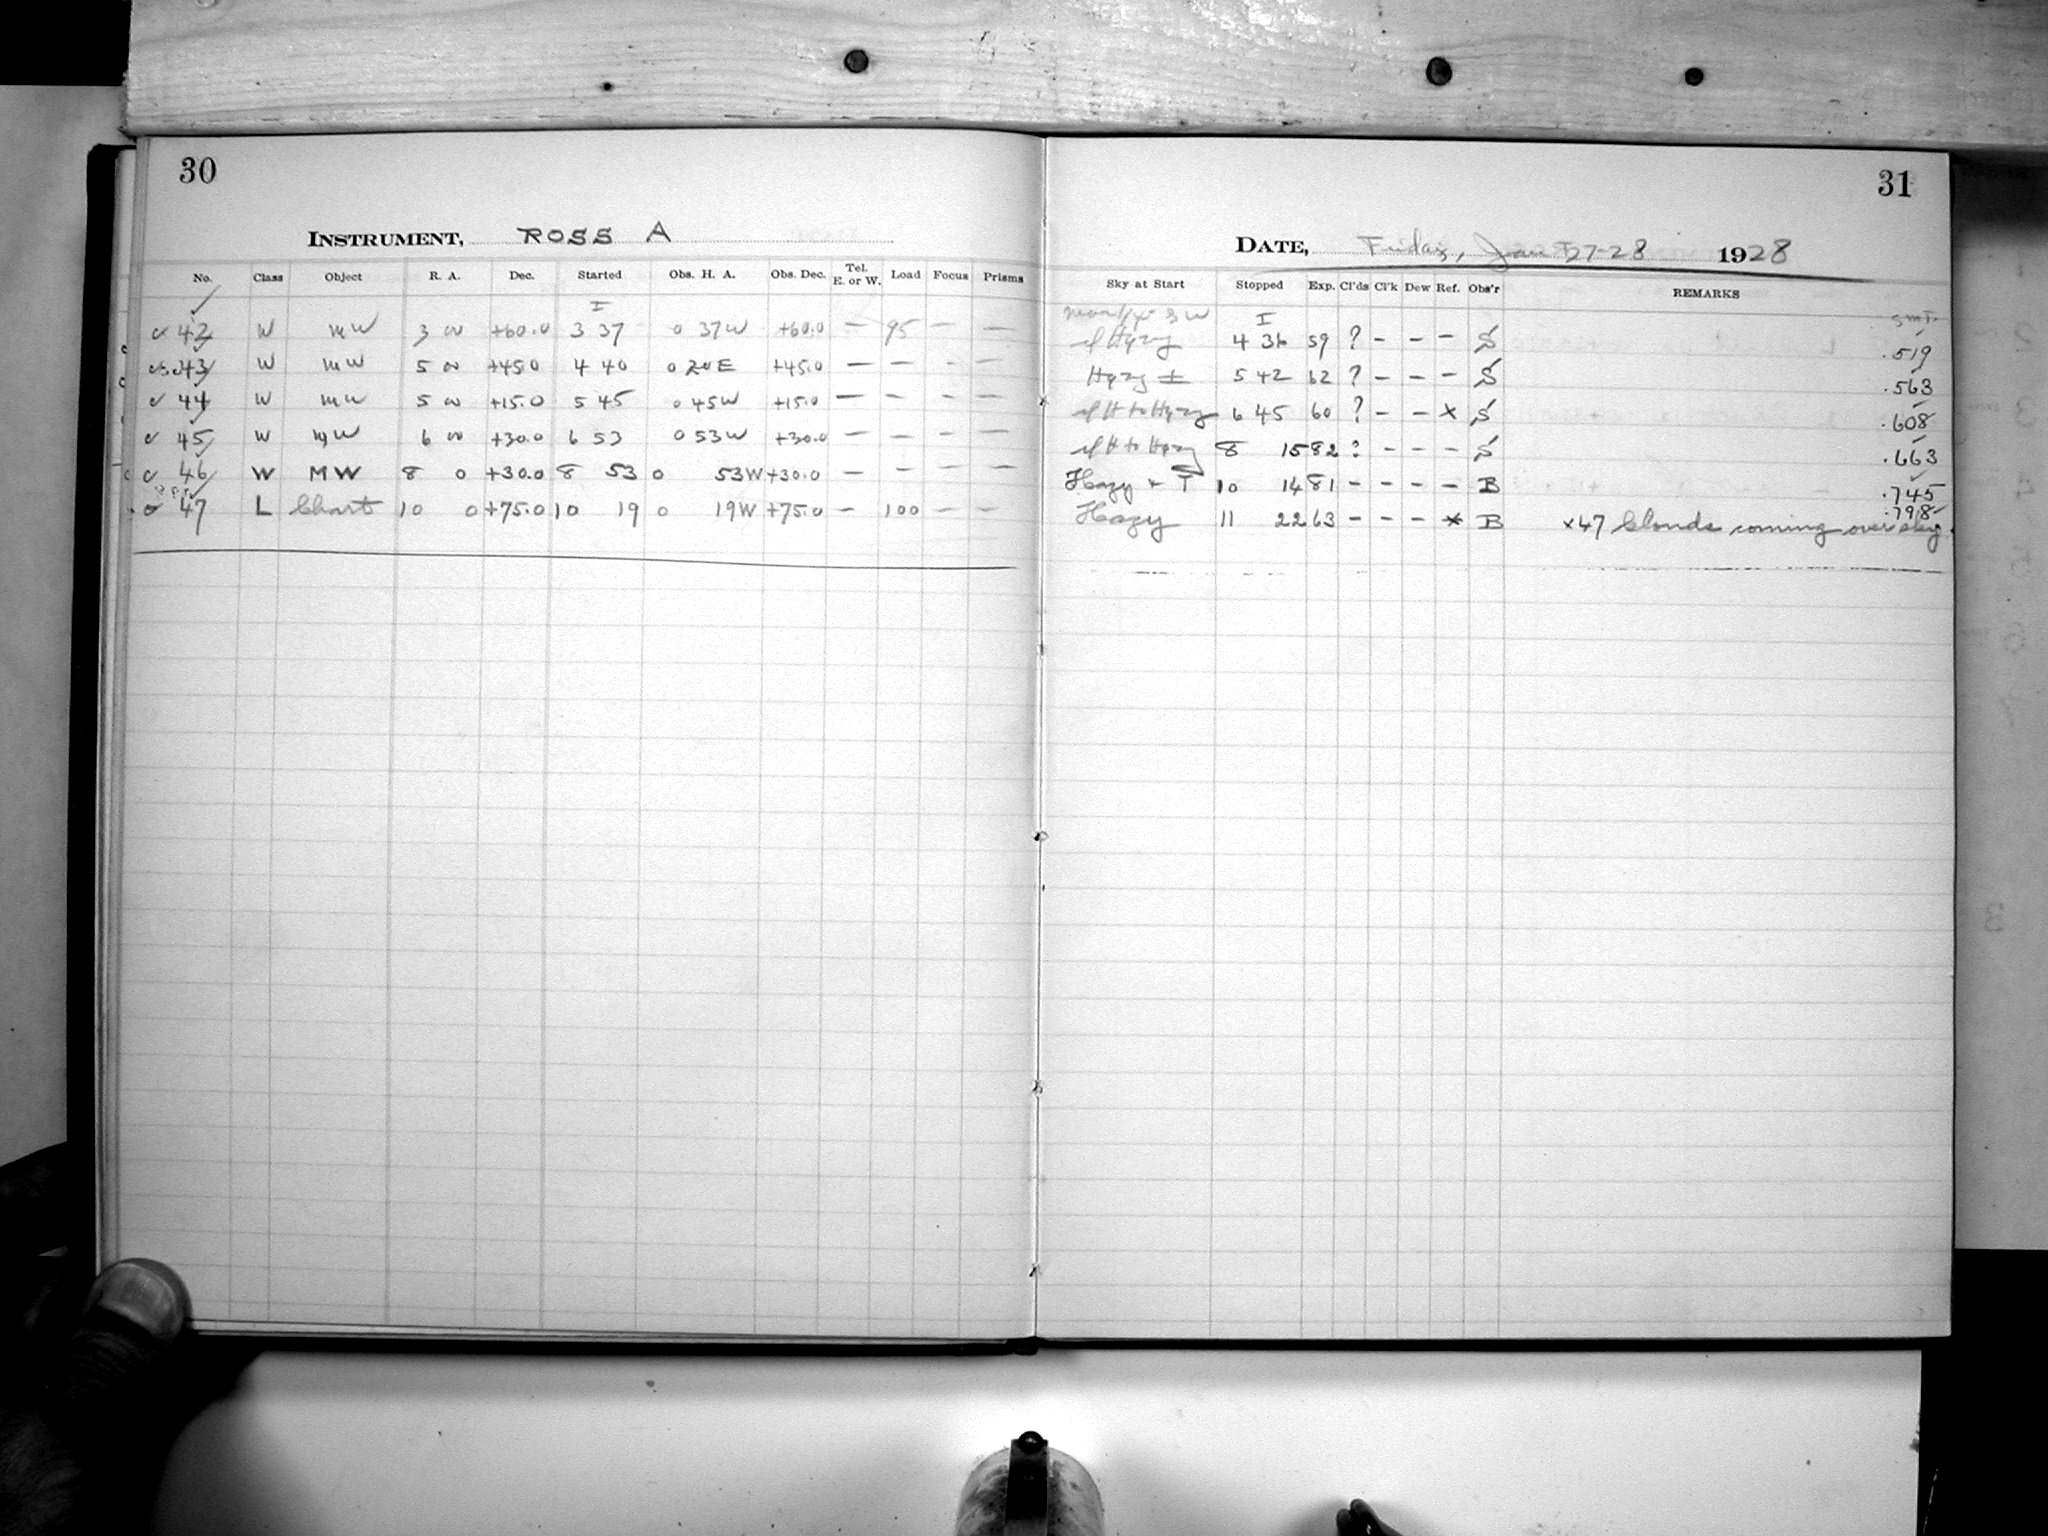 30
INSTRUMENT, ROSS A
No. Class Object R. A. Dec. Started Obs. H. A. Obs. Dec. Tel. E. or W. Load Focus Prisms
I
42 W MW 3 00 +60.0 3 37 0 37W +60.0 — 95 — —
43 W MW 5 00 +45.0 4 40 0 20E +45.0 — — — —
44 W MW 5 00 +15.0 5 45 0 45W +15.0 — — — —
45 W MW 6 00 +30.0 6 53 0 53W +30.0 — — — —
46 W MW 8 0 +30.0 8 53 0 53W +30.0 — — — —
47 L Chart 10 0 +75.0 10 19 0 19W +75.0 — 100 — —
31
DATE, Friday, Jan 27-28 1928
Sky at Start Stopped Exp. Cl'ds Cl'k Dew Ref. Obs'r REMARKS
I G.M.T.
sl Hazy 4 36 59 ? - - - S .519
Hazy ± 5 42 62 ? - - - S .563
sl H to Hazy 6 45 60 ? - - x S .608
sl H to Hazy 8 15 82 ? - - - S .663
Hazy + T 10 14 81 - - - - B .745
Hazy 11 22 63 - - - x B x47 Clouds coming over sky. .798